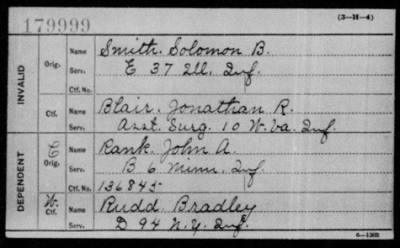 179999
(3—H—4)
INVALID
Orig. Name Smith, Solomon B.
Serv. E 37 Ill. Inf.
Ctf. No.
Ctf. Name Blair, Jonathan R.
Serv. Asst. Surg. 10 W. Va. Inf.
DEPENDENT
Orig. Name Rank, John A.
Serv. B 6 Minn. Inf.
Ctf. No. 136845
W. Ctf. Name Rudd Bradley
Serv. D 94 N.Y. Inf.